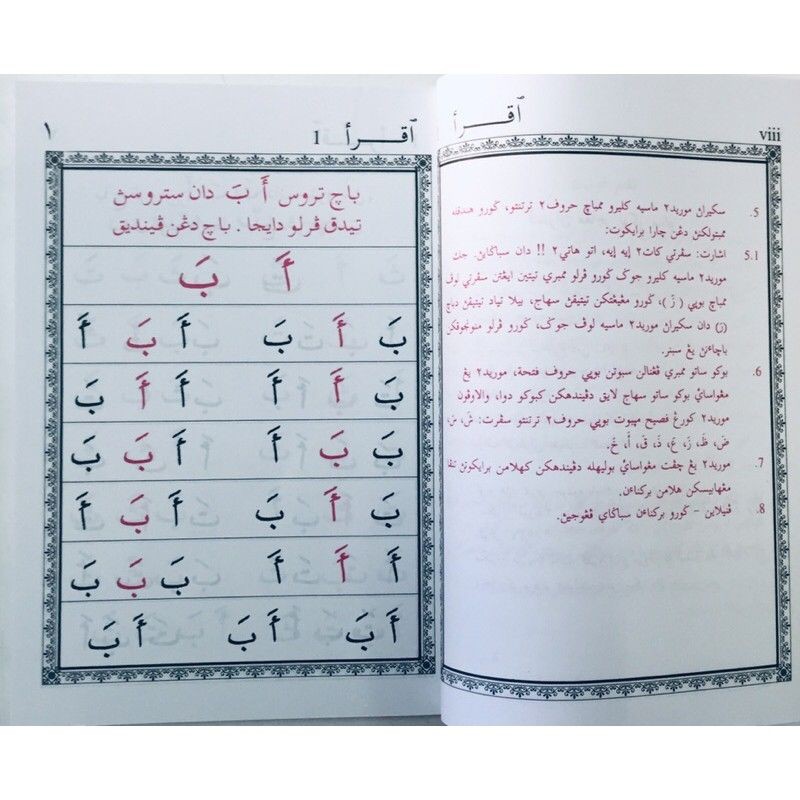 viii
ٱقـــرأ
5. سکيراڽ موريد٢ ماسيه کليرو ممباچ حروف٢ ترتنتو، ݢورو هندقله
ممبتولکن دڠن چارا برايکوت:
5.1 اشارت: سڤرتي کات٢ إيه إيه، اتو هاتي٢ !! دان سباݢايڽ. جک
موريد٢ ماسيه کليرو جوݢ ݢورو ڤرلو ممبري تيتين ايڠتن سڤرتي لوڤ
ممباچ بوڽي ( زَ )، ݢورو مڠيڠتکن تيتيقڽ سهاج، بيلا تياد تيتيقڽ دباچ
(رَ) دان سکيراڽ موريد٢ ماسيه لوڤ جوݢ، ݢورو ڤرلو منونجوقکن
باچاءن يڠ سبنر.
6. بوکو ساتو ممبري ڤڠنالن سبوتن بوڽي حروف فتحة، موريد٢ يڠ
مڠواساءي بوکو ساتو سهاج لايق دڤيندهکن کبوکو دوا، والاوڤون
موريد٢ کورڠ فصيح مڽبوت بوڽي حروف٢ ترتنتو سڤرت: شَ، سَ،
ضَ، ظَ، زَ، عَ، ذَ، قَ، أَ، حَ.
7. موريد٢ يڠ چڤت مڠواساءي بوليهله دڤيندهکن کهلامن برايکوتڽ تنڤا
مڠهابيسکن هلامن برکناءن.
8. ڤنيلاين - ݢورو برکناءن سباݢاي ڤڠوجيڽ.
ٱقـــرأ 1
١
باچ تروس أَ بَ دان ستروسڽ
تيدق ڤرلو دايجا . باچ دڠن ڤينديق
أَ بَ
بَ أَ بَ أَ بَ أَ
بَ أَ أَ أَ أَ بَ
بَ بَ أَ أَ بَ بَ
بَ أَ بَ أَ بَ أَ
أَ أَ أَ بَ بَ بَ
أَ بَ أَ بَ أَ بَ